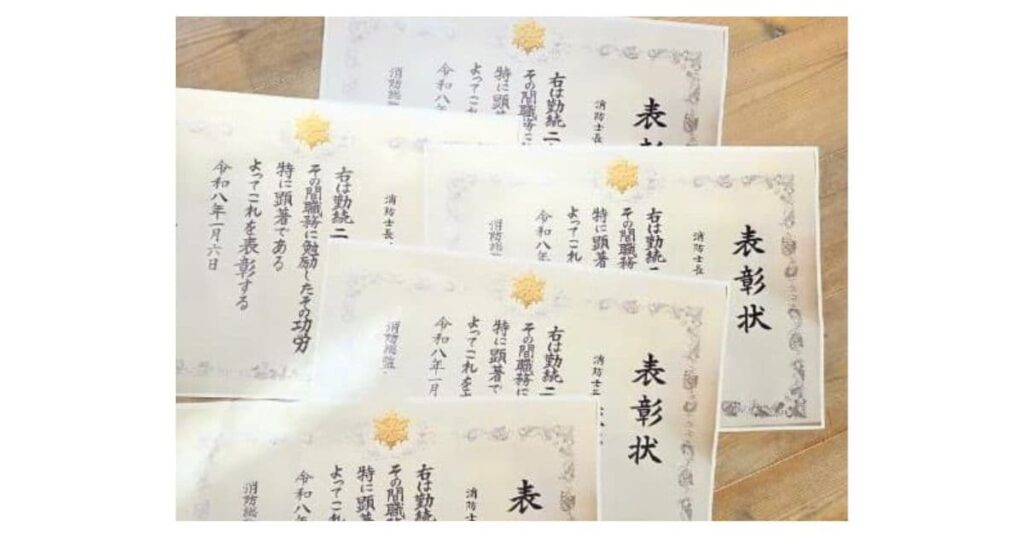 表彰
消防士長
右は勤続二
その間職務に
特に顕著
よってこれ
令和八年
消防総監
消防士長
右は勤続二
その間職務に勉励したその功労
特に顕著である
よってこれを表彰する
令和八年一月六日
表彰状
消防士長
右は勤続二
その間職務
特に顕著
よってこれ
令和八年
消防総監
表彰状
消防士長
右は勤続二
その間職務に
特に顕著で
よってこれを
令和八年一月
消防総監
表
消防士長
右は勤続
その間職務
特に顕著
よってこれ
令和八年
消防総